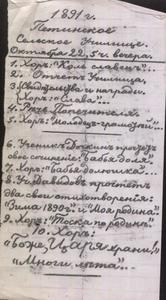 1891 г.
Петинское
Сельское Училище.
Октября 22, 5 ч. вечера.
1. Хоръ: "Коль славенъ"...
2. Отчетъ Училища,
3. Свидѣтельства и награды.
Хоръ: "Слава"...
4. Рѣчь Попечителя.
5. Хоръ:
6. Ученикъ прочтетъ
свое сочиненіе: "Бабья доля".
7. Хоръ: "Бабья долюшка"...
8. Давидовъ прочтетъ
два свои стихотворенія:
"Зима 1890 г." и "Моя родина".
9. Хоръ: "Тоска по родинѣ".
10. Хоръ:
"Боже, Царя храни!"
"Многи лѣта"...